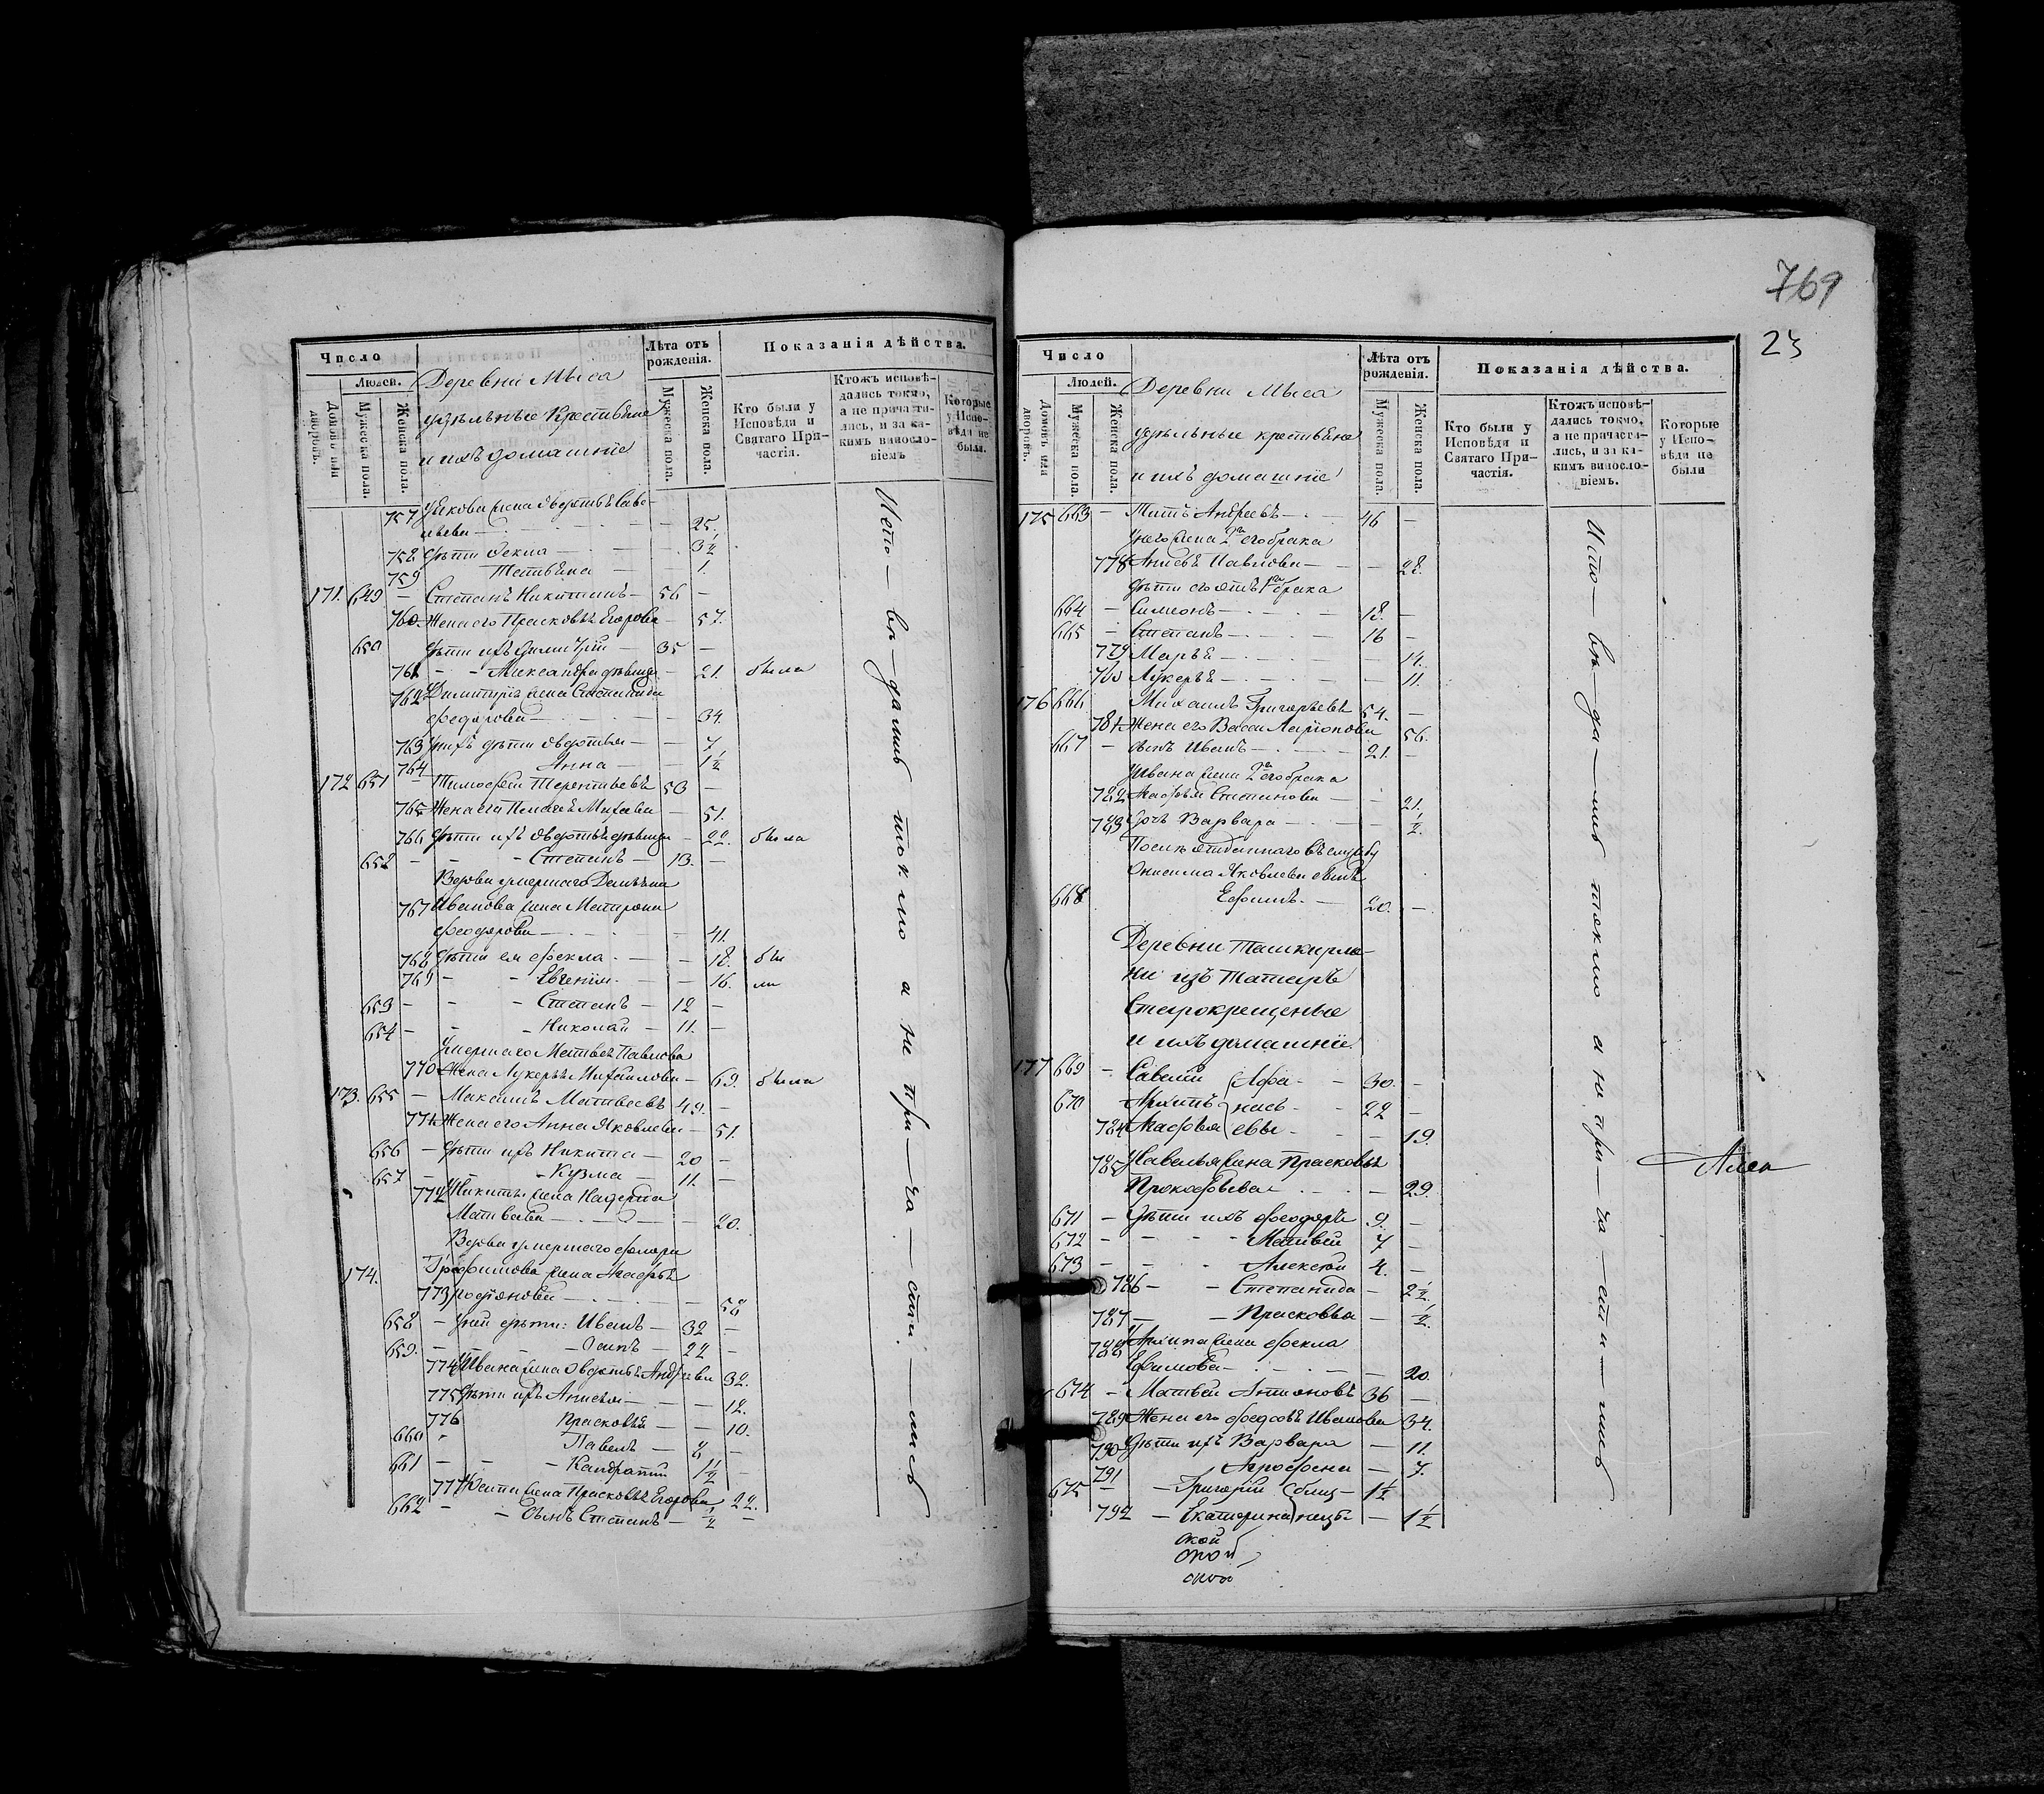 Число
Людей.
Домовъ или дворовъ.
Мужеска пола.
Женска пола.
Деревни Мыса
удѣльные крестьяне
и ихъ домашніе
Лѣта отъ рожденія.
Мужеска пола.
Женска пола.
Показанія дѣйства.
Кто были у Исповѣди и Святаго Причастія.
Ктожъ исповѣдались токмо, а не причастились, и за какимъ винословіемъ
Которые у Исповѣди не были.
757 жена Евдотья Саве-
льева — 25.
758 Дѣти Фекла — 3½
759 Татьяна — 1
171. 649 — Степанъ Никитинъ — 56 —
760 Жена его Прасковья Егорова — 57.
650 Дѣти ихъ Димитрій — 35 —
761 — Александра дѣвица — 21. была
762 Димитрія жена Степанида
Федорова — 34
763 У нихъ дѣти Авдотья — 7
764 Анна — 1½
172 651 — Тимофей Терентьевъ 50 —
765 Жена его Михеева — 51.
766 Дѣти ихъ Авдотья дѣвица — 22. была
652 — Степанъ — 13. —
Вдова умершаго Демьяна
767 Иванова жена Матрона
Феодорова — 41.
768 Дѣти ея Фекла — 18. бы
769 — Евгенія — 16. ли
653 — Степанъ — 12 —
654 — Николай — 11. —
Умершаго Матвея Павлова
770 Жена Лукерья Михайлова — 69. была
173. 655 — Максимъ Матвеевъ 49. —
771 Жена его Анна Яковлева — 51.
656 — Дѣти ихъ Никита — 20 —
657 — Кузма 11. —
772 Никиты жена Надежда
Матвеева — 20.
Вдова умершаго
174. Трофимова жена Агафья
773 Родіонова — 58
658 — У ней дѣти: Иванъ — 32 —
659. — Осипъ — 22 —
774 Ивана жена Авдотья Андреева 32.
775 Дѣти ихъ Анисья — 12.
776 Прасковья — 10.
660 — Павелъ — 8 —
661 — Кандратій 1½ —
777 Осипа жена Прасковья Егорова 22.
662 — Сынъ Степанъ — ½ —
Испо — вѣ — дались токмо а не при — ча — сти — лись
769
23
Число
Людей.
Домовъ или дворовъ.
Мужеска пола.
Женска пола.
Деревни Мыса
удѣльные крестьяне
и ихъ домашніе
Лѣта отъ рожденія.
Мужеска пола.
Женска пола.
Показанія дѣйства.
Кто были у Исповѣди и Святаго Причастія.
Ктожъ исповѣдались токмо, а не причастились, и за какимъ винословіемъ.
Которые у Исповѣди не были
175 663 — Андреевъ — 46 —
У него жена 2го его брака
778 Анисья Павлова — 28.
Дѣти его отъ 1го брака
664 — Симеонъ — 18. —
665 — Степанъ — 16 —
779 Марья — 14.
780 Лукерья — 11.
176 666 Михаилъ Григорьевъ 54. —
781 Жена его Васса Ларіонова 56.
667 — Сынъ Иванъ — 21. —
Ивана жена 2го его брака
782 Агафья Степанова — 21.
783 Дочь Варвара — ½.
Послѣ отданнаго въ службу
Онисима Яковлева сынъ
668 Ефимъ — 20. —
Деревни Ташкирме-
ни изъ Татаръ
Старокрещеные
и ихъ домашніе.
177 669 — Савелій Афа- — 30. —
670 Архипъ нась- — 22 —
784 Агафья евы — 19.
785 Савелья жена Прасковья
Прокофьева — 29.
671 — Дѣти ихъ Феодоръ 9. —
672 — Матвей 7 —
673 — Алексѣй 4. —
786 — Степанида — 2½.
787 — Прасковья — ½.
788 Архипа жена Фекла
Ефимова — 20
674 — Матвей Антоновъ 36 —
789 Жена его Федосья Иванова 34.
790 Дѣти ихъ Варвара — 11.
791 Агрофена — 7.
675 — Григорій близ- 1½
792 — Екатерина нецы — 1½
Испо — вѣ — да — лись токмо а не при — ча — сти — лись